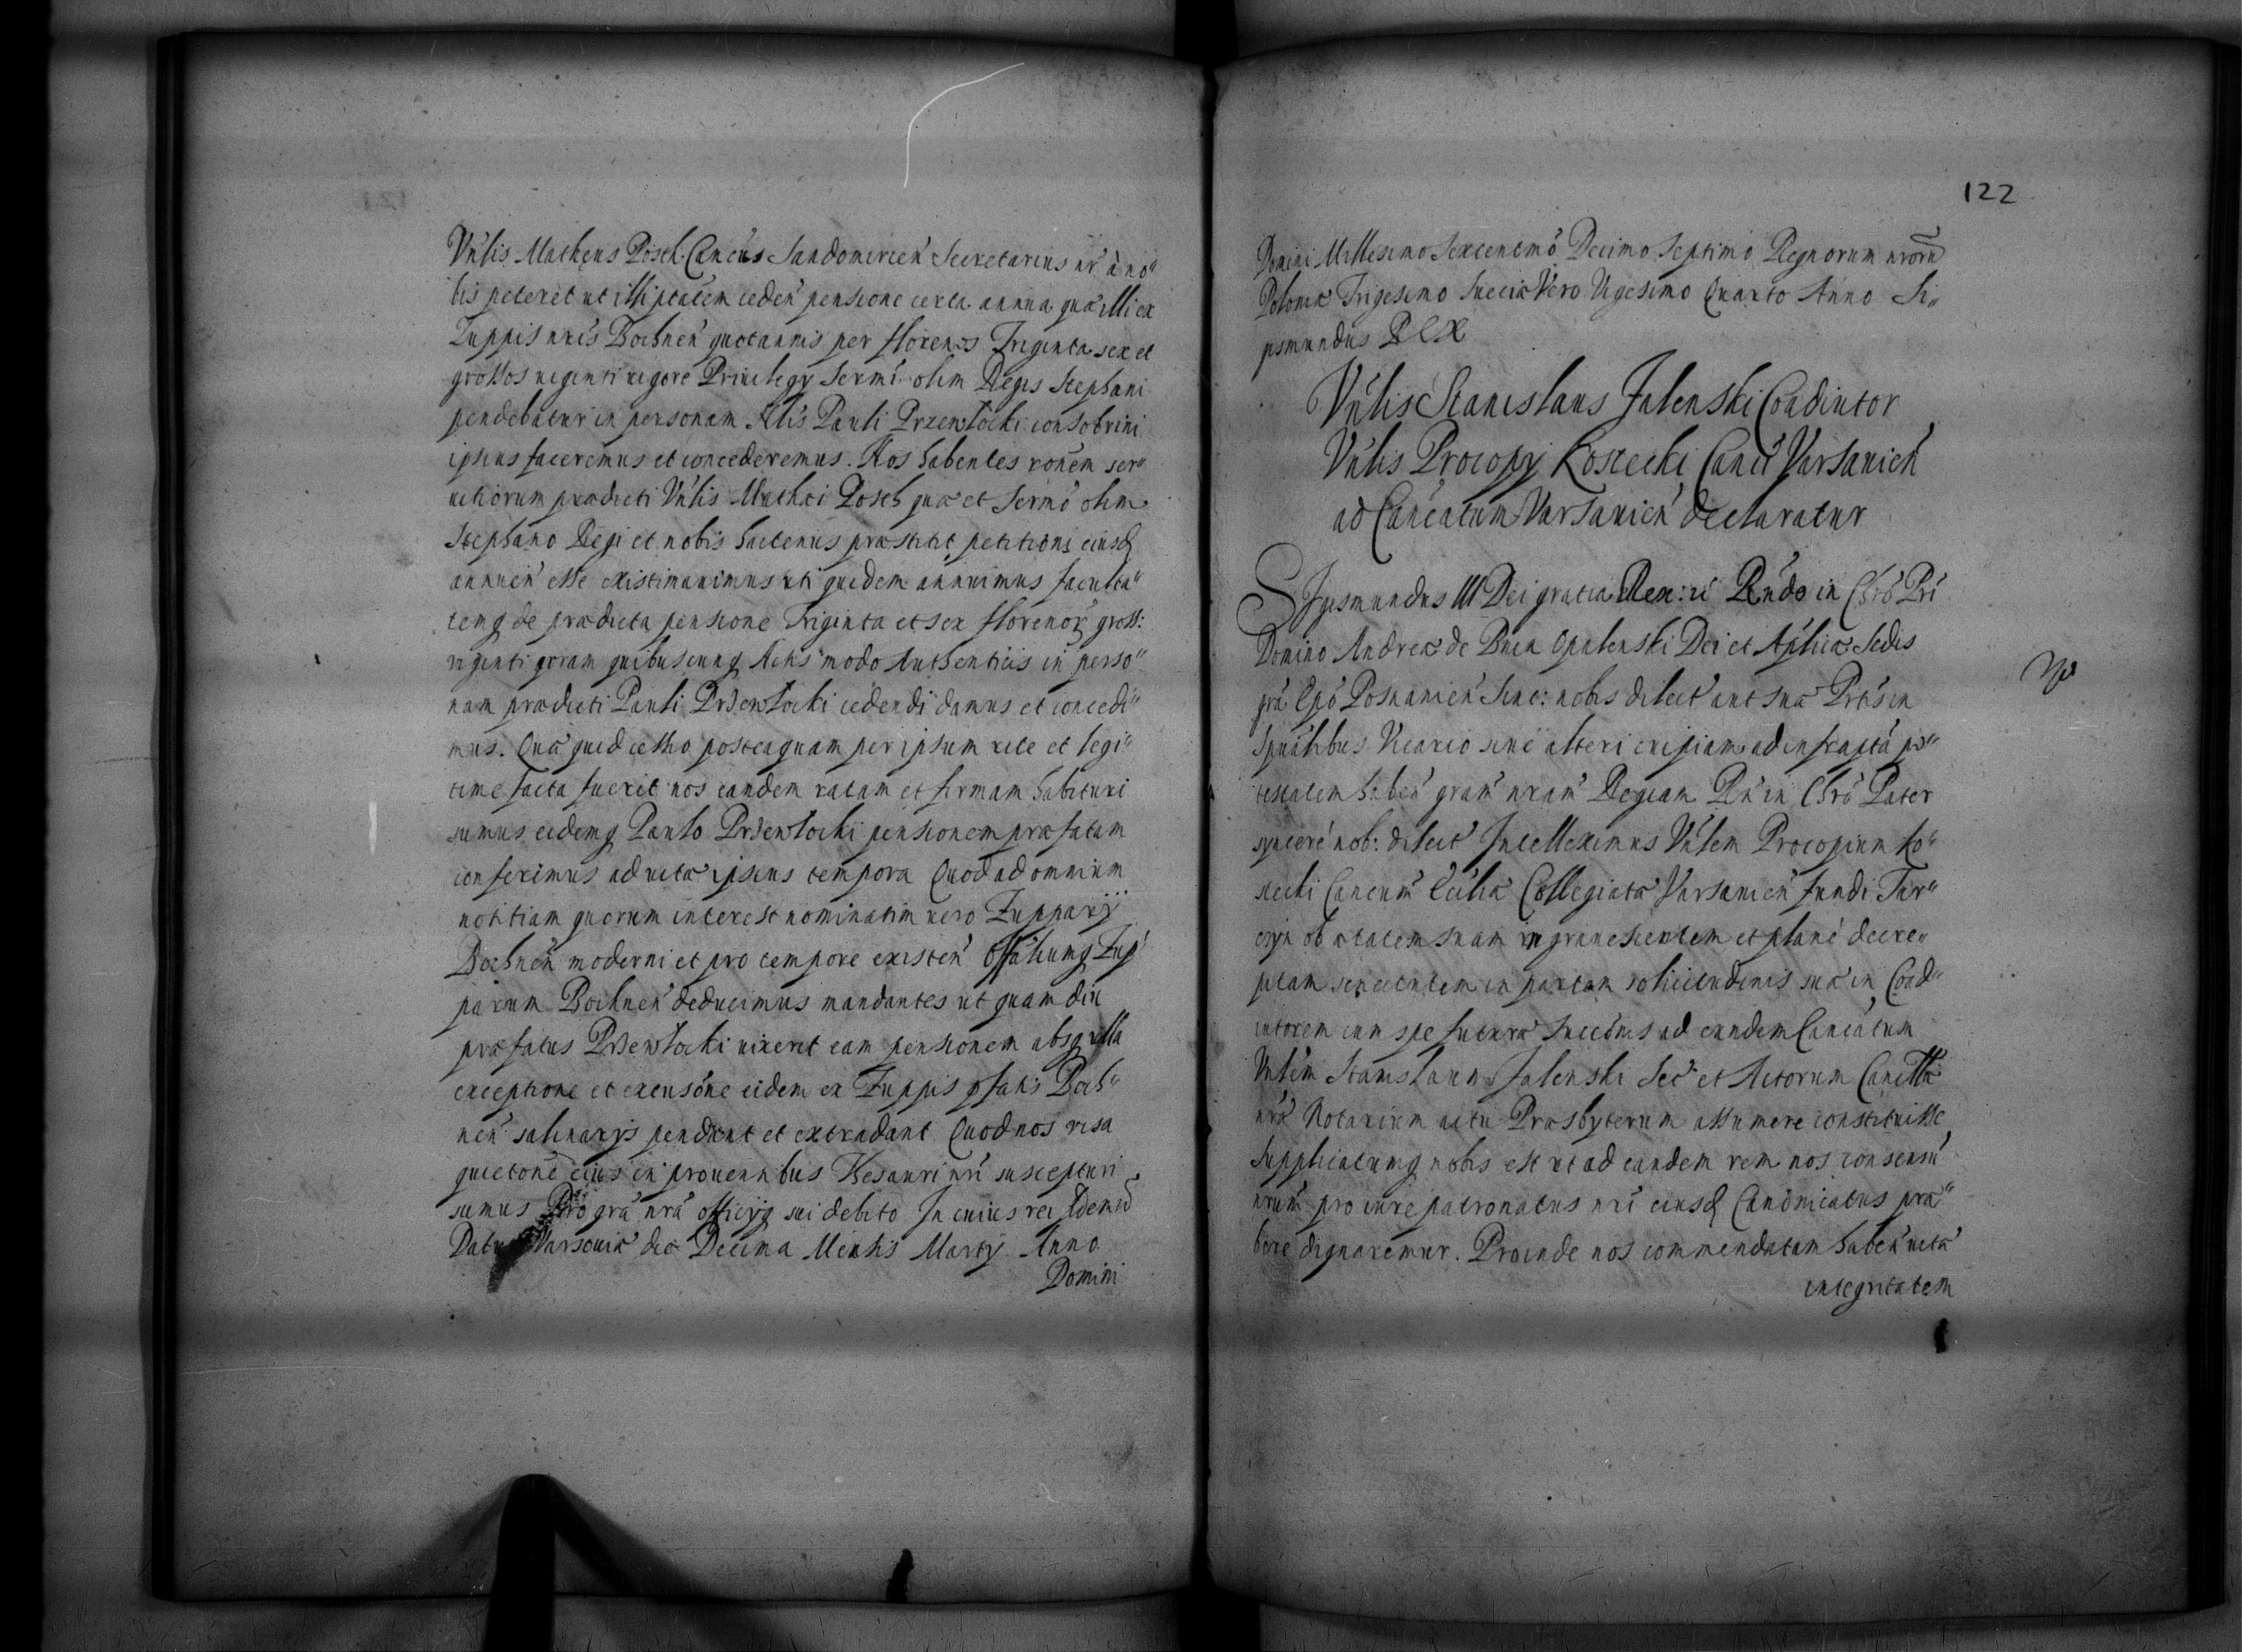 Vńlis Matheus Posch Cancus Sandomirień Secretarius nr̃ à no"
bis peteret ut illi ptatem ceden̄ pensione certa annua quæ illi ex
Zuppis nr̃is Bochneń quotannis per florenos Triginta sex et
grossos viginti vigore Priuilegy Sermi olim Regis Stephani
pendebatur in personam Nlis Pauli Przewłocki consobrini
ipsius faceremus et concederemus. Nos habentes rõnem ser"
uitiorum prædicti Vńlis Mathæi Posch quæ et Sermo olim
Stephano Regi et nobis hactenus præstitit petitioni eiusd
annueń esse existimauimus uti quidem annuimus faculta"
temq de prædicta pensione Triginta et sex florenor gross:
viginti coram quibuscunq Actis modo Authenticis in perso"
nam prædicti Pauli Przewłocki cedendi damus et concedi"
mus. Quæ quid cessio posteaquam per ipsum rite et legi"
time facta fuerit nos eandem ratam et firmam habituri
sumus eidemq Paulo Przewłocki pensionem præfatam
conferimus ad vitæ ipsius tempora Quod ad omnium
notitiam quorum interest nominatim vero Zupparij
Bochneń moderni et pro tempore existeń offaliumq Zup
parum Bochneń deducimus mandantes ut quam diu
præfatus Przewłocki vixerit eam pensionem absq ulla
exceptione et excusõne eidem ex Zuppis pfatis Boch"
neń salinarijs pendant et extradant Quod nos visa
quietõne eius in prouentibus Thesauri nri suscepturi
sumus Pro grã nrã officijq sui debito In cuius rei fidem
Datum Varsouiæ die Decima Mensis Martij Anno
Domini
122
Domini Millesimo Sexcentmo Decimo Septimo Regnorum nrorũ
Poloniæ Trigesimo Sueciæ Vero Vigesimo Quarto Anno Si"
gismundus REX
Vńlis Stanislaus Jalenski Coadiutor
Vńlis Procopy Kostecki Canci Varsauień
ad Cancatum Varsauień declaratur
Sigismundus III Dei gratia Rex: ri Rńdo in Chrõ Pri
Domino Andreæ de Bnin Opalenski Dei et Aplicæ Sedis
grã Epõ Posnanień Sinc: nobis dilect aut suæ Prtis in
Spũalibus Vicario siue alteri cuipiam ad infraptã po"
testatem habeń gram nram Regiam Rń in Chrõ Pater
syncere nob: dilect Intelleximus Vńlem Procopium Ko"
stecki Cancum Eccliæ Collegiatæ Varsauień fundi Tar"
ob ætatem suam ingrauescentem et planè decre"
pitam senectutem in partem solicitudinis suæ in Coad"
iutorem cum spe futuræ succõnis ad eundem Cancatum
Vńlem Stanislaum Jalenski Sec et Actorum Cancllæ
nræ Notarium actu Præsbyterum assumere constituisse
Supplicatumq nobis est ut ad eandem rem nos consensũ
nrum pro iure patronatus nri eiusd Canonicatus præ"
bere dignaremur. Proinde nos commendatam habeń vitæ
integritatem